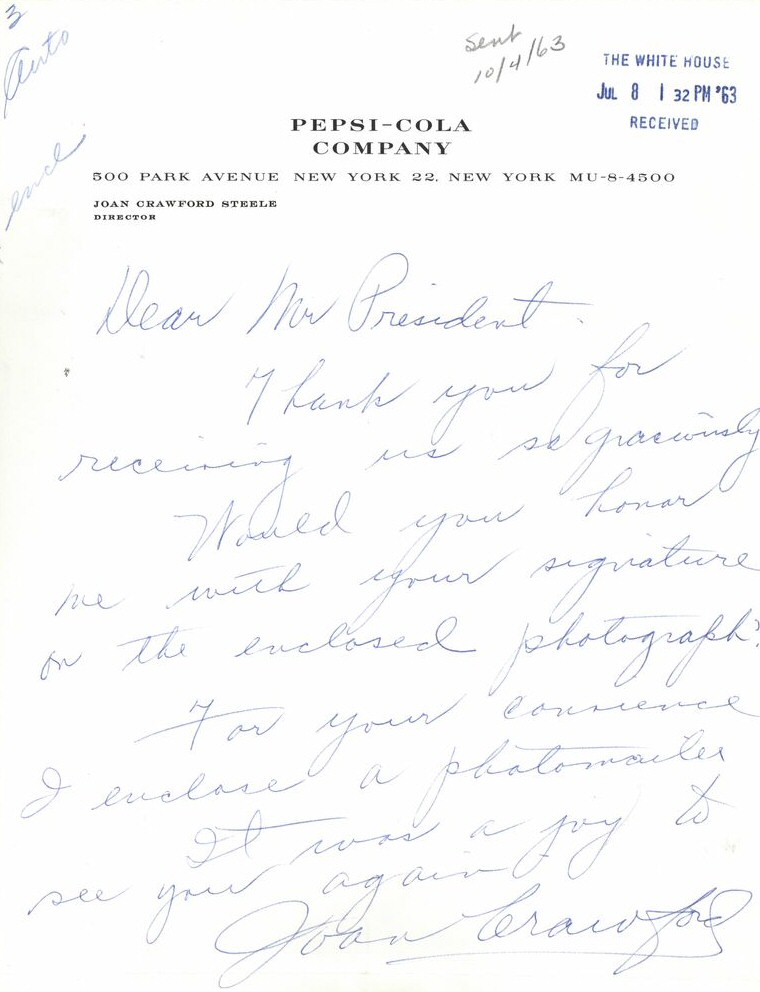 3
Auto
encl.
Sent
10/4/63
THE WHITE HOUSE
JUL 8 1 32 PM '63
RECEIVED
PEPSI-COLA
COMPANY
500 PARK AVENUE NEW YORK 22, NEW YORK MU-8-4500
JOAN CRAWFORD STEELE
DIRECTOR
Dear Mr President.
Thank you for
receiving us so graciously
Would you honor
me with your signature
on the enclosed photograph?
For your convience
I enclose a photomailer
It was a joy to
see you again
Joan Crawford